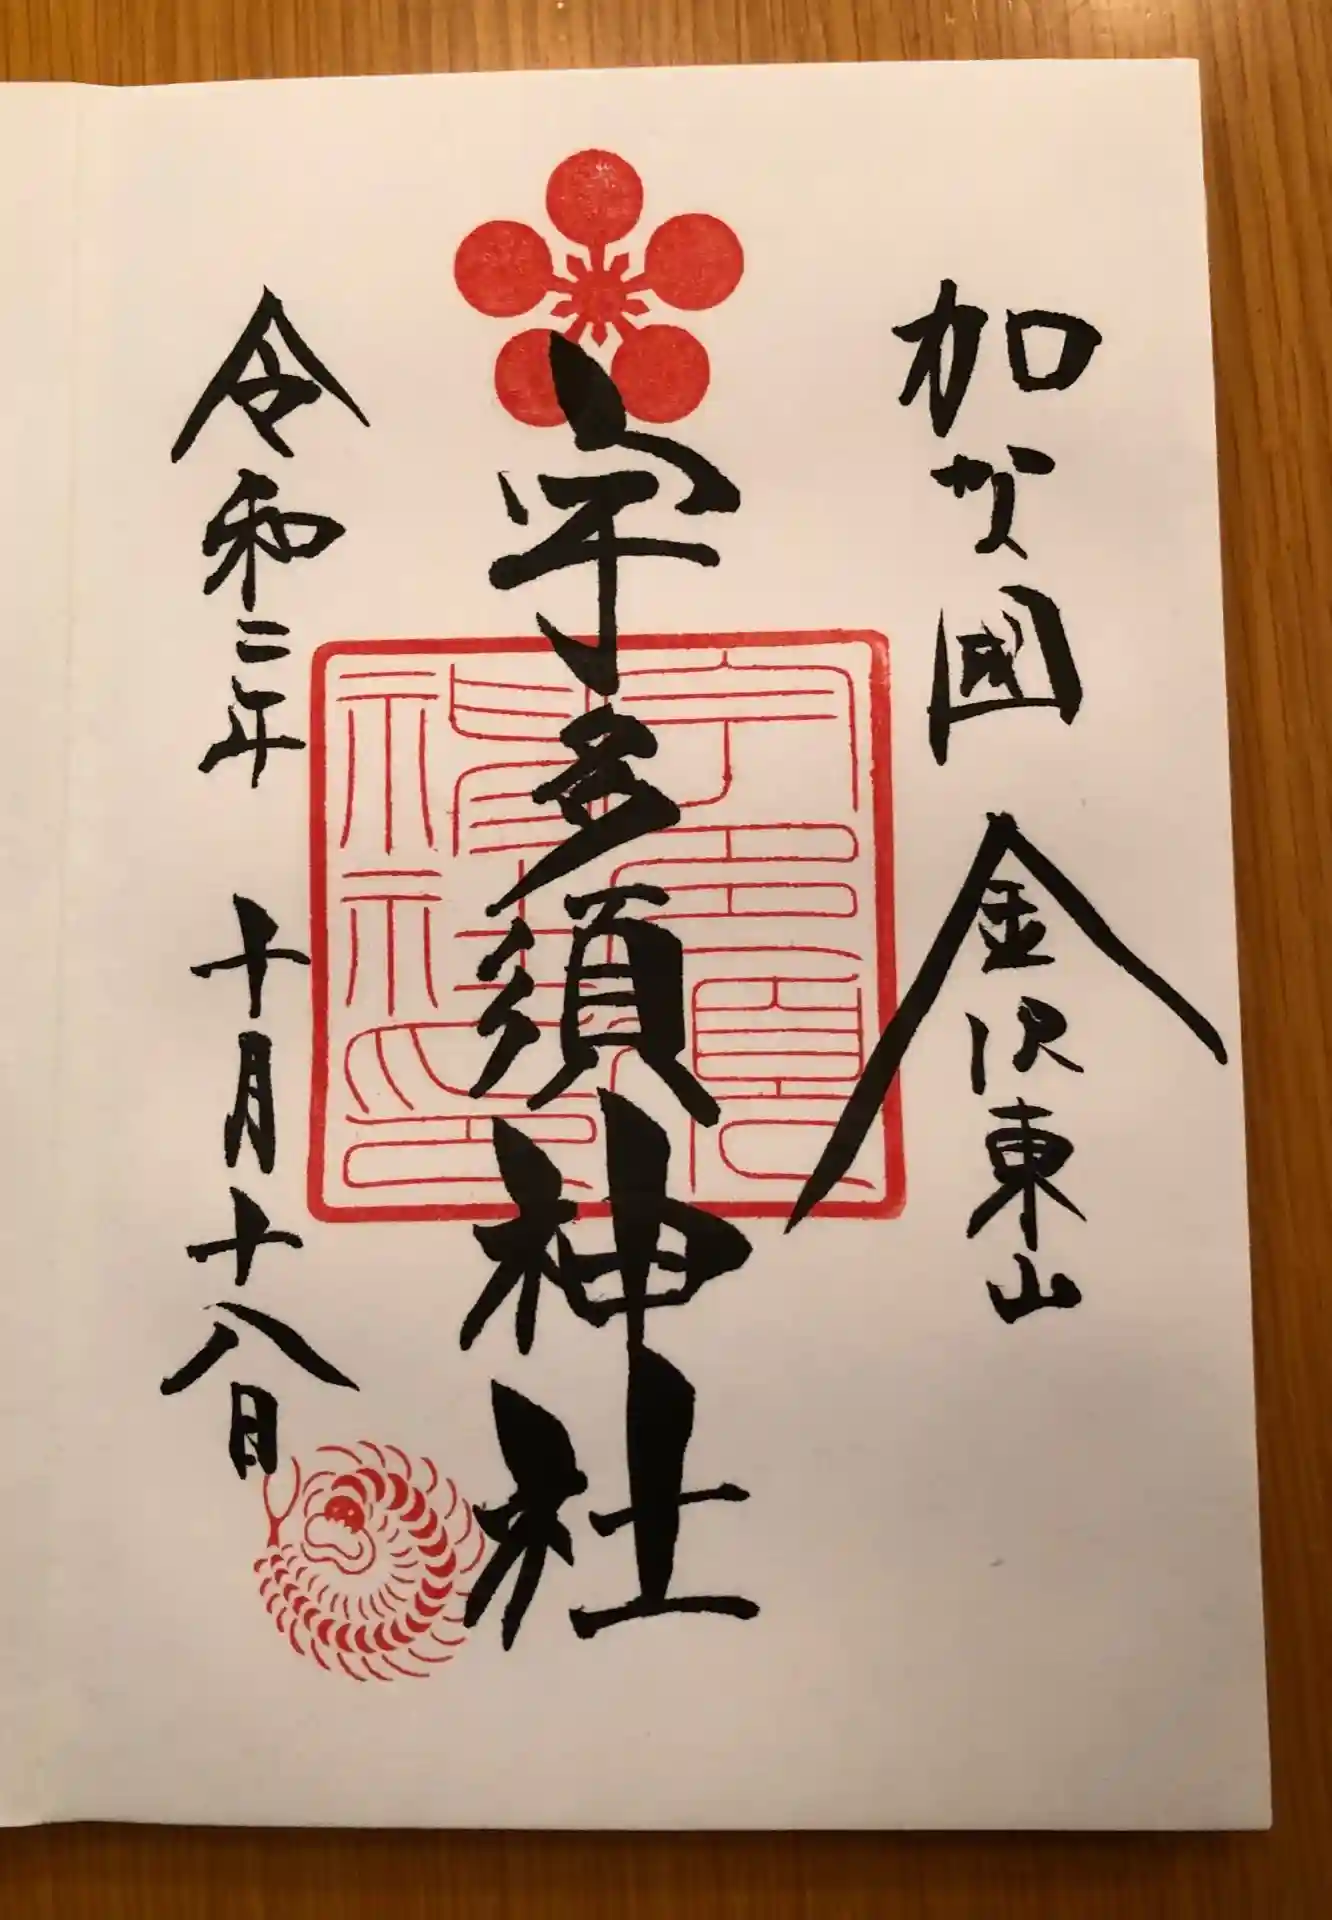 加賀國 金沢東山
宇多須神社
令和二年 十月十八日
宇多須
神社
社印